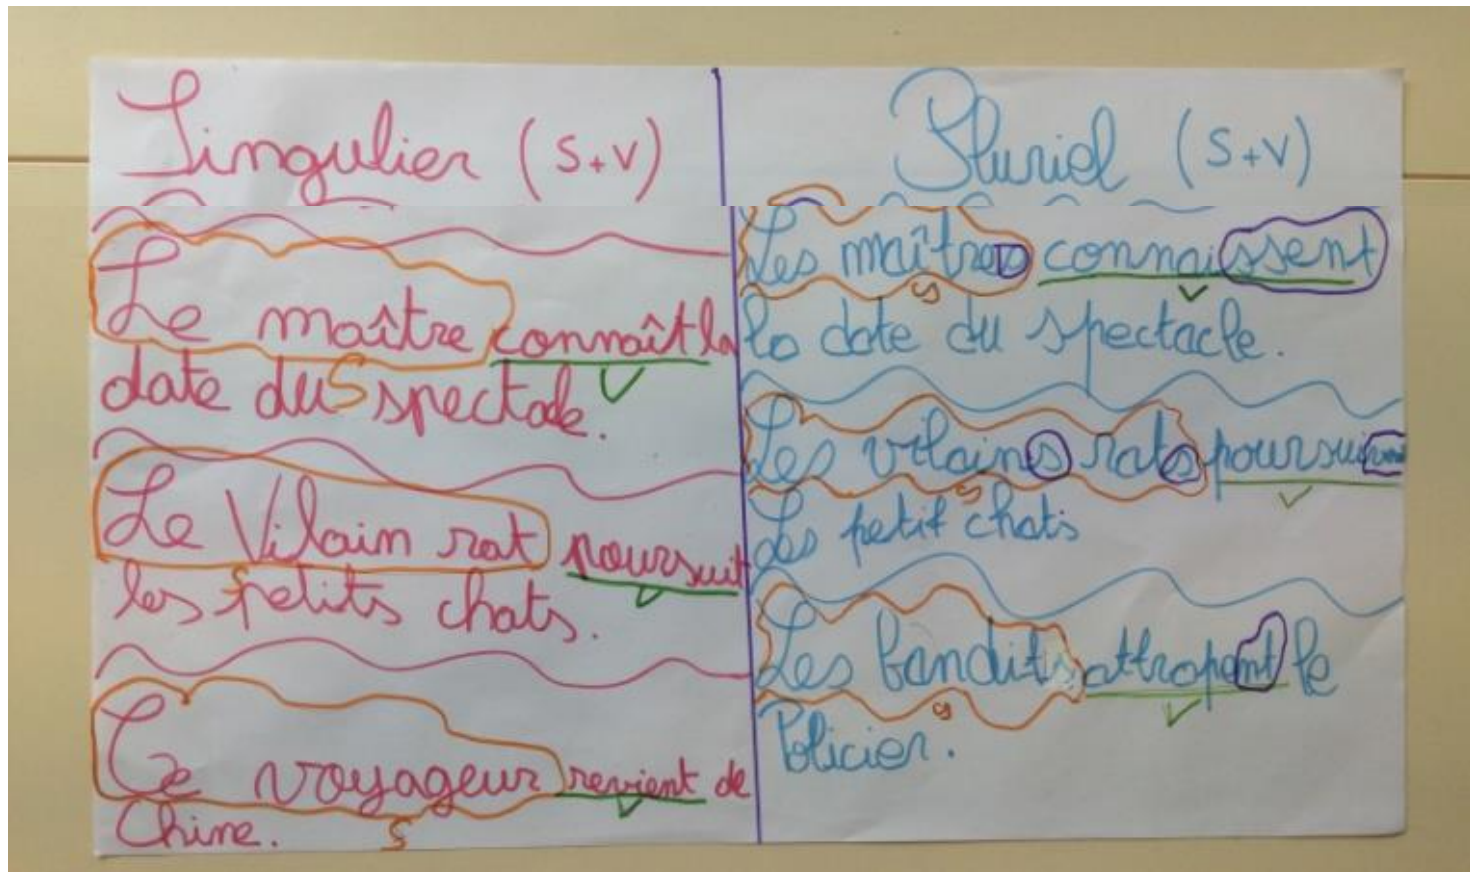 Singulier (S+V)
Le maître connaît la
date du spectacle.
S
V
Le Vilain rat poursuit
les petits chats.
S
V
Ce voyageur revient de
Chine.
S
V
Pluriel (S+V)
Les maîtres connaissent
la date du spectacle.
S
V
Les vilains rats
Les petit chats
S
V
Les bandits attrapent le
Policier.
S
V